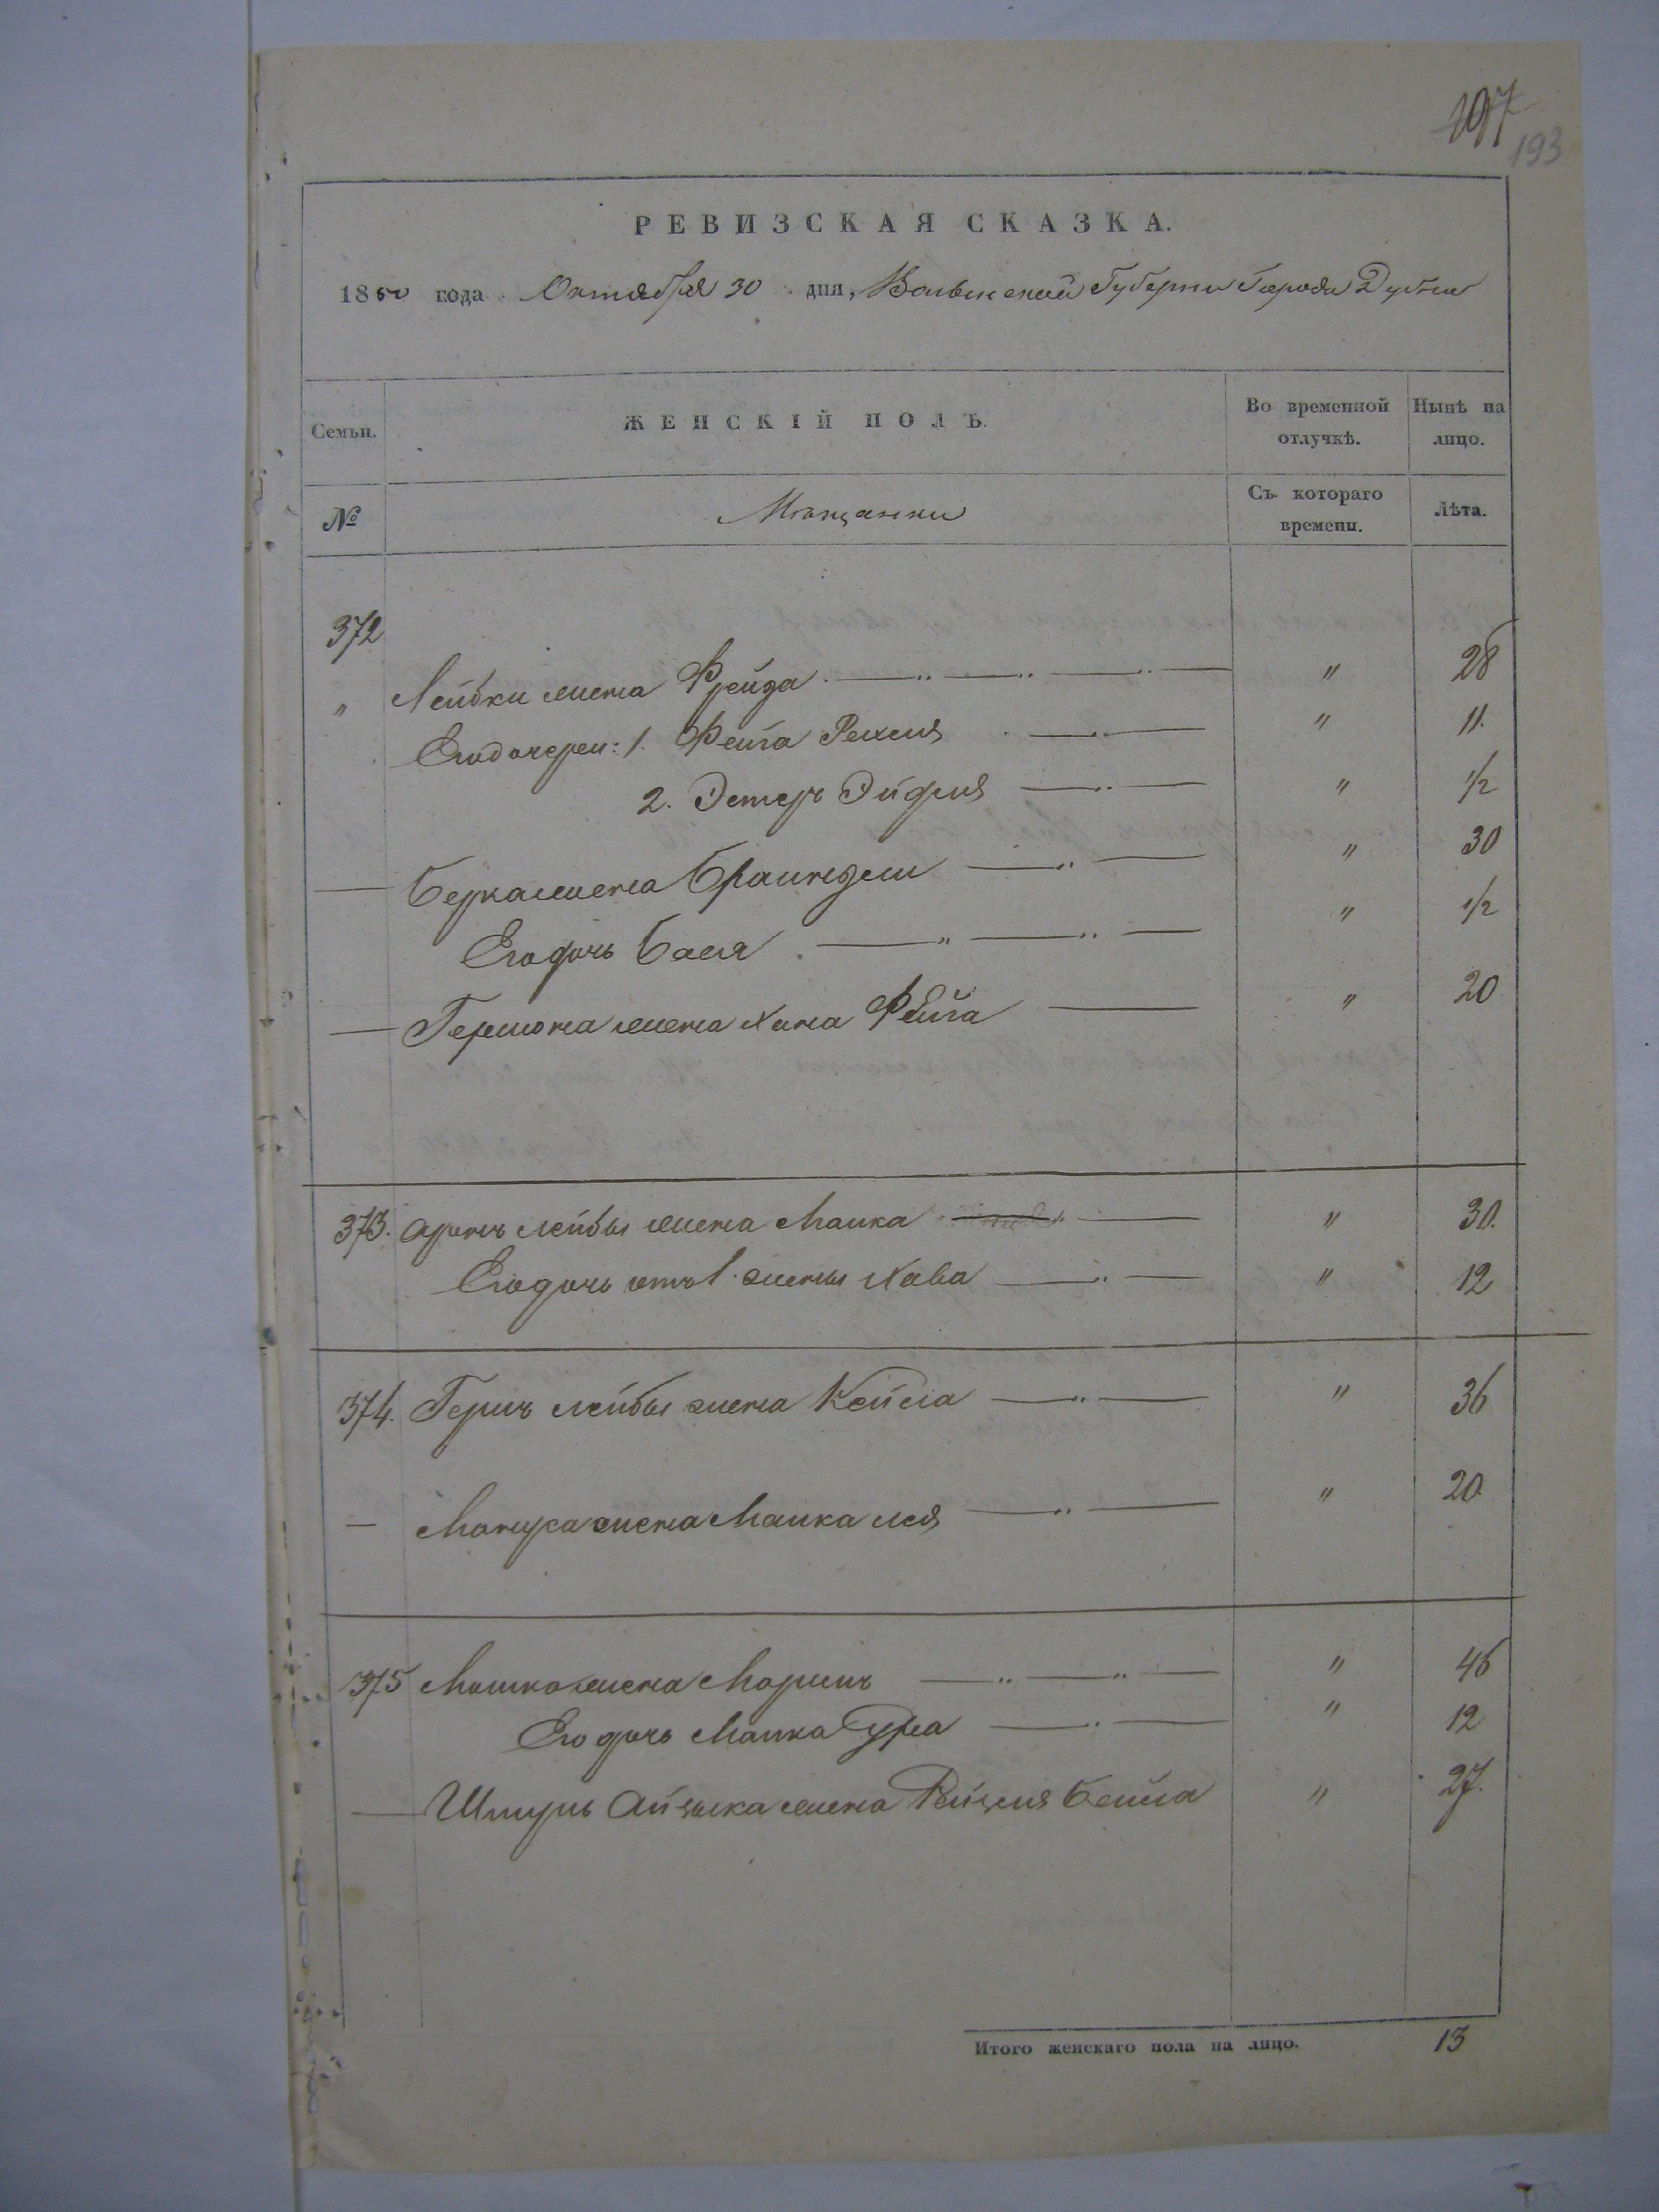 197
193
РЕВИЗСКАЯ СКАЗКА.
1850 года Октября 30 дня, Волынской Губернии Города Дубна
Семьи. ЖЕНСКІЙ ПОЛЪ. Во временной отлучкѣ. Нынѣ на лицо.
№ Мѣщанки Съ котораго времени. Лѣта.
372
" Лейбки жена Фрейда " 28
Его дочери: 1. Фейга Рехля " 11.
2. Эстеръ Эйдля " 1/2
Берка жена Браиндли " 30
Его дочь Бася " 1/2
Гершона жена Хана Фейга " 20
373. Аронъ Лейбы жена Малка " 30.
Его дочь отъ 1. жены Хава " 12
374. Гершъ Лейбы жена Кейла " 36
жена Малка Лея " 20
375 Мошка жена " 46
Его дочь Малка Сура " 12
Шмуль Айзыка жена Рейзля Бейла " 27.
Итого женскаго пола на лицо. 13